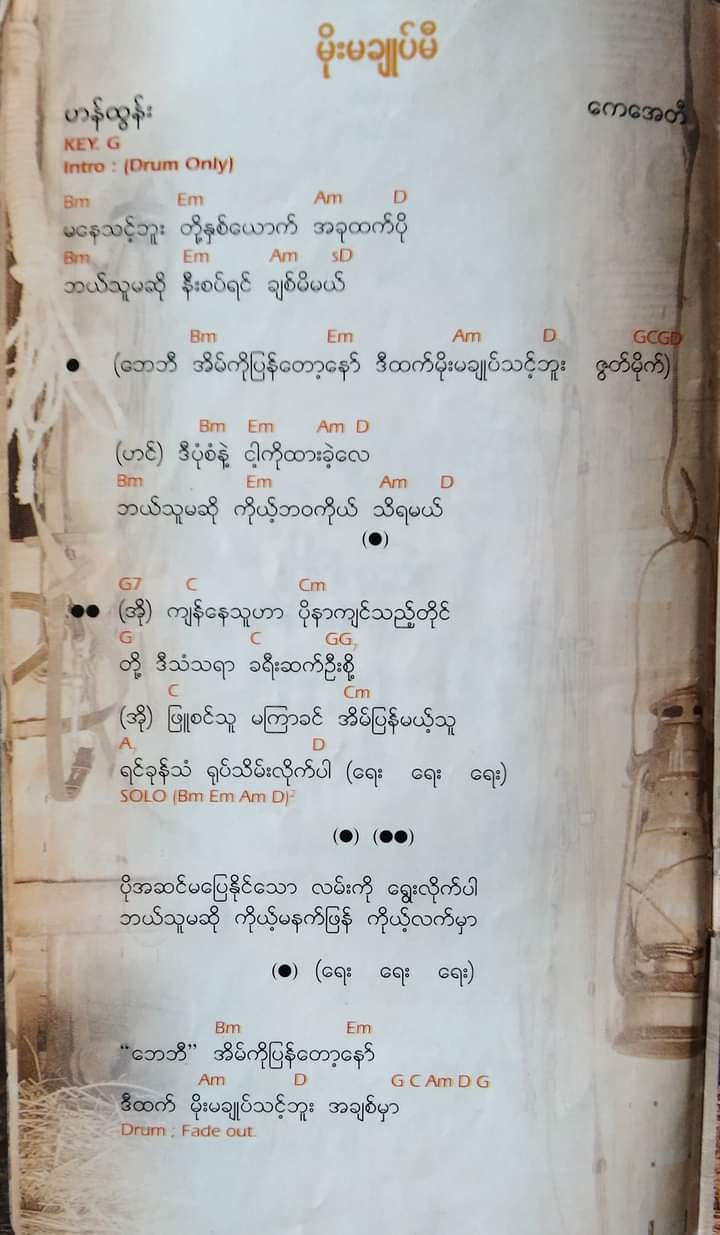 မိုးမချုပ်မီ
ဟန်ထွန်း ကေအေတီ
KEY. G
Intro : (Drum Only)
Bm Em Am D
မနေသင့်ဘူး တို့နှစ်ယောက် အခုထက်ပို
Bm Em Am sD
ဘယ်သူမဆို နီးစပ်ရင် ချစ်မိမယ်
Bm Em Am D GCGD
● (ဘေဘီ အိမ်ကိုပြန်တော့နော် ဒီထက်မိုးမချုပ်သင့်ဘူး ဇွတ်မိုက်)
Bm Em Am D
(ဟင်) ဒီပုံစံနဲ့ ငါ့ကိုထားခဲ့လေ
Bm Em Am D
ဘယ်သူမဆို ကိုယ့်ဘဝကိုယ် သိရမယ်
(●)
G7 C Cm
●● (အို) ကျန်နေသူဟာ ပိုနာကျင်သည့်တိုင်
G C GG7
တို့ ဒီသံသရာ ခရီးဆက်ဦးစို့
C Cm
(အို) ဖြူစင်သူ မကြာခင် အိမ်ပြန်မယ့်သူ
A7 D
ရင်ခုန်သံ ရုပ်သိမ်းလိုက်ပါ (ရေး ရေး ရေး)
SOLO (Bm Em Am D)²
(●) (●●)
ပိုအဆင်မပြေနိုင်သော လမ်းကို ရွေးလိုက်ပါ
ဘယ်သူမဆို ကိုယ့်မနက်ဖြန် ကိုယ့်လက်မှာ
(●) (ရေး ရေး ရေး)
Bm Em
“ဘေဘီ” အိမ်ကိုပြန်တော့နော်
Am D G C Am D G
ဒီထက် မိုးမချုပ်သင့်ဘူး အချစ်မှာ
Drum ; Fade out.